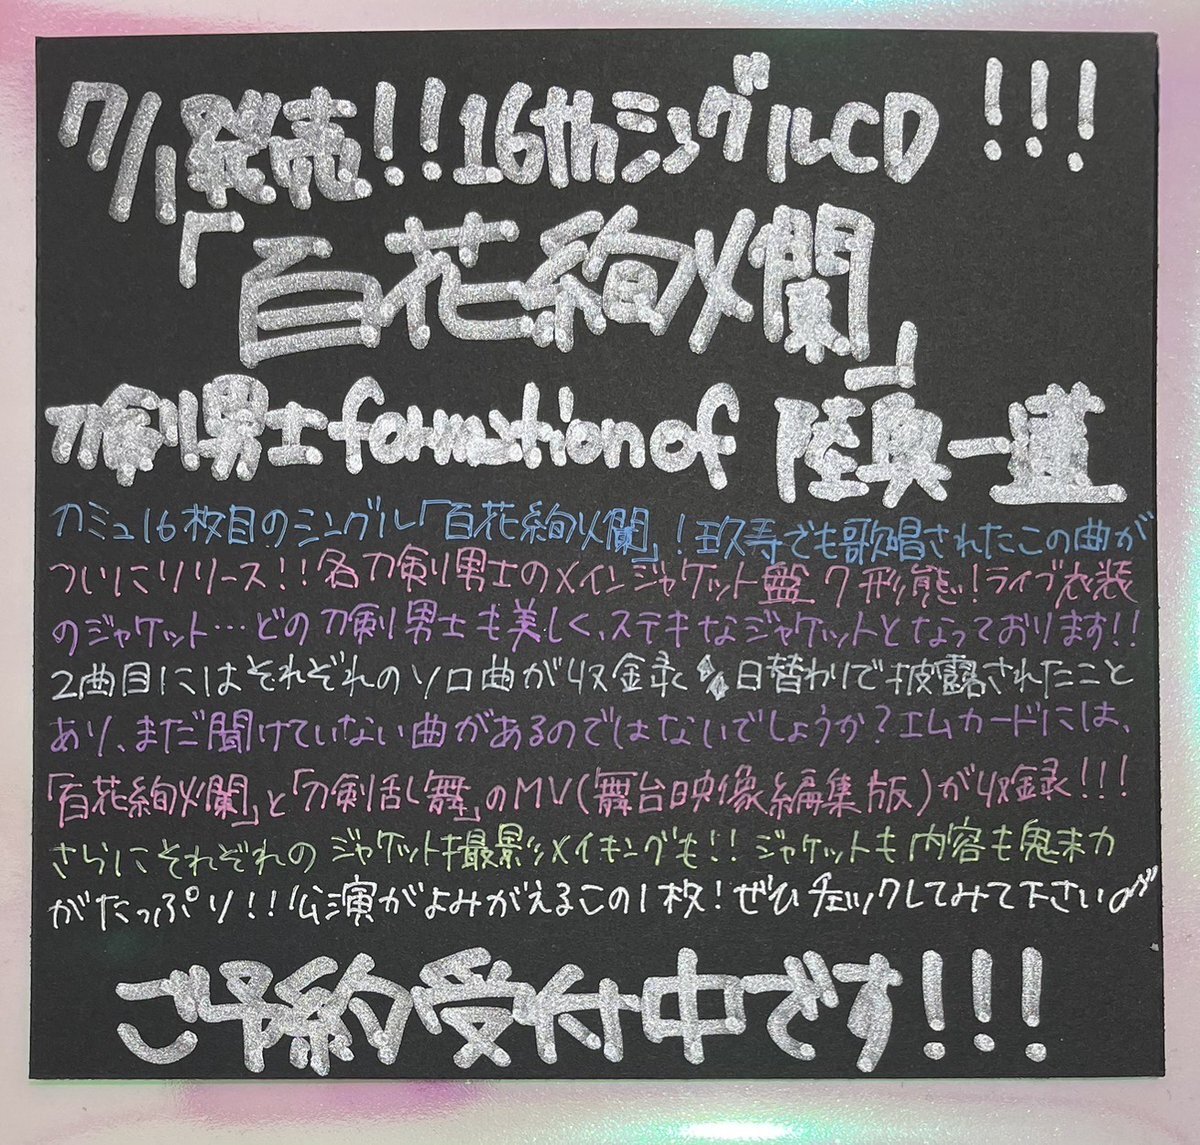 7/1発売!!16thシングルCD!!!
「百花絢爛」
刀剣男士formation of 陸奥一蓮
カミュ16枚目のシングル「百花絢爛」!玖寿でも歌唱されたこの曲が
ついにリリース!!各刀剣男士のメインジャケット盤7形態!ライブ衣装
のジャケット…どの刀剣男士も美しく、ステキなジャケットとなっております!!
2曲目にはそれぞれのソロ曲が収録 日替わりで披露されたこと
あり、まだ聞けていない曲があるのではないでしょうか?エムカードには、
「百花絢爛」と「刀剣乱舞」のMV(舞台映像編集版)が収録!!!
さらにそれぞれのジャケット撮影メイキングも!!ジャケットも内容も魅力
がたっぷり!!公演がよみがえるこの1枚!ぜひチェックしてみて下さい♫
ご予約受付中です!!!